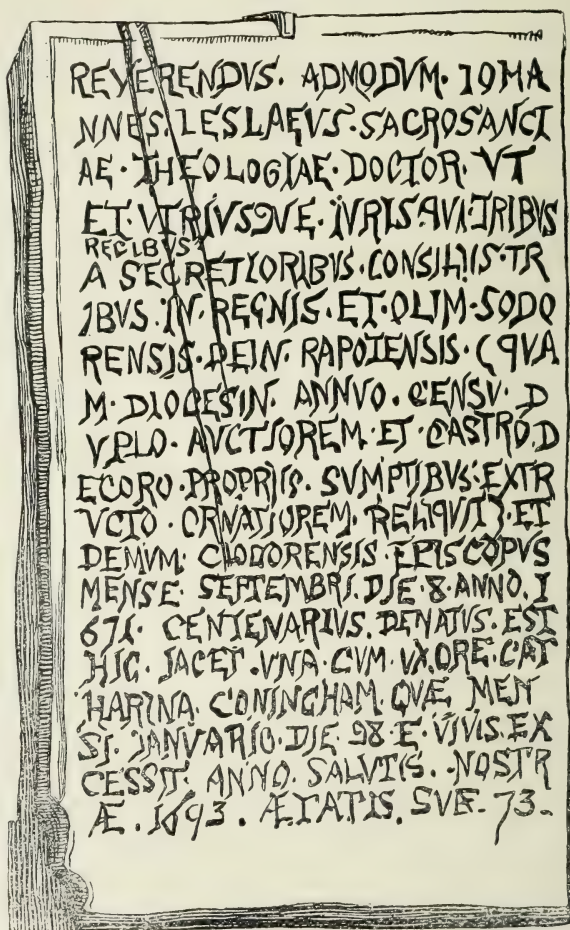 REVERENDVS. ADMODVM. IOHA
NNES. LESLAEVS. SACROSANCT
AE. THEOLOGIAE. DOCTOR. VT
ET. VTRIVSQVE. IVRIS. QVI. TRIBVS
REGIBVS
A SECRETIORIBVS. CONSILIIS. TR
IBVS. IN. REGNIS. ET. OLIM. SODO
RENSIS. DEIN. RAPOTENSIS. (QVA
M. DIOCESIN. ANNVO. CENSV. D
VPLO. AVCTIOREM. ET. CASTRO. D
ECORO. PROPRIIS. SVMPTIBVS. EXTR
VCTO. ORNATIOREM. RELIQVIT). ET
DEMVM. CLOGORENSIS. EPISCOPVS
MENSE. SEPTEMBRI. DIE. 8. ANNO. I
671. CENTENARIVS. DENATVS. EST
HIC. JACET. VNA. CVM. VXORE. CAT
HARINA. CONINGHAM. QVÆ MEN
SI. JANVARIO. DIE 28. E. VIVIS. EX
CESSIT. ANNO. SALVTIS. NOSTR
Æ. 1693. ÆTATIS. SVÆ. 73.